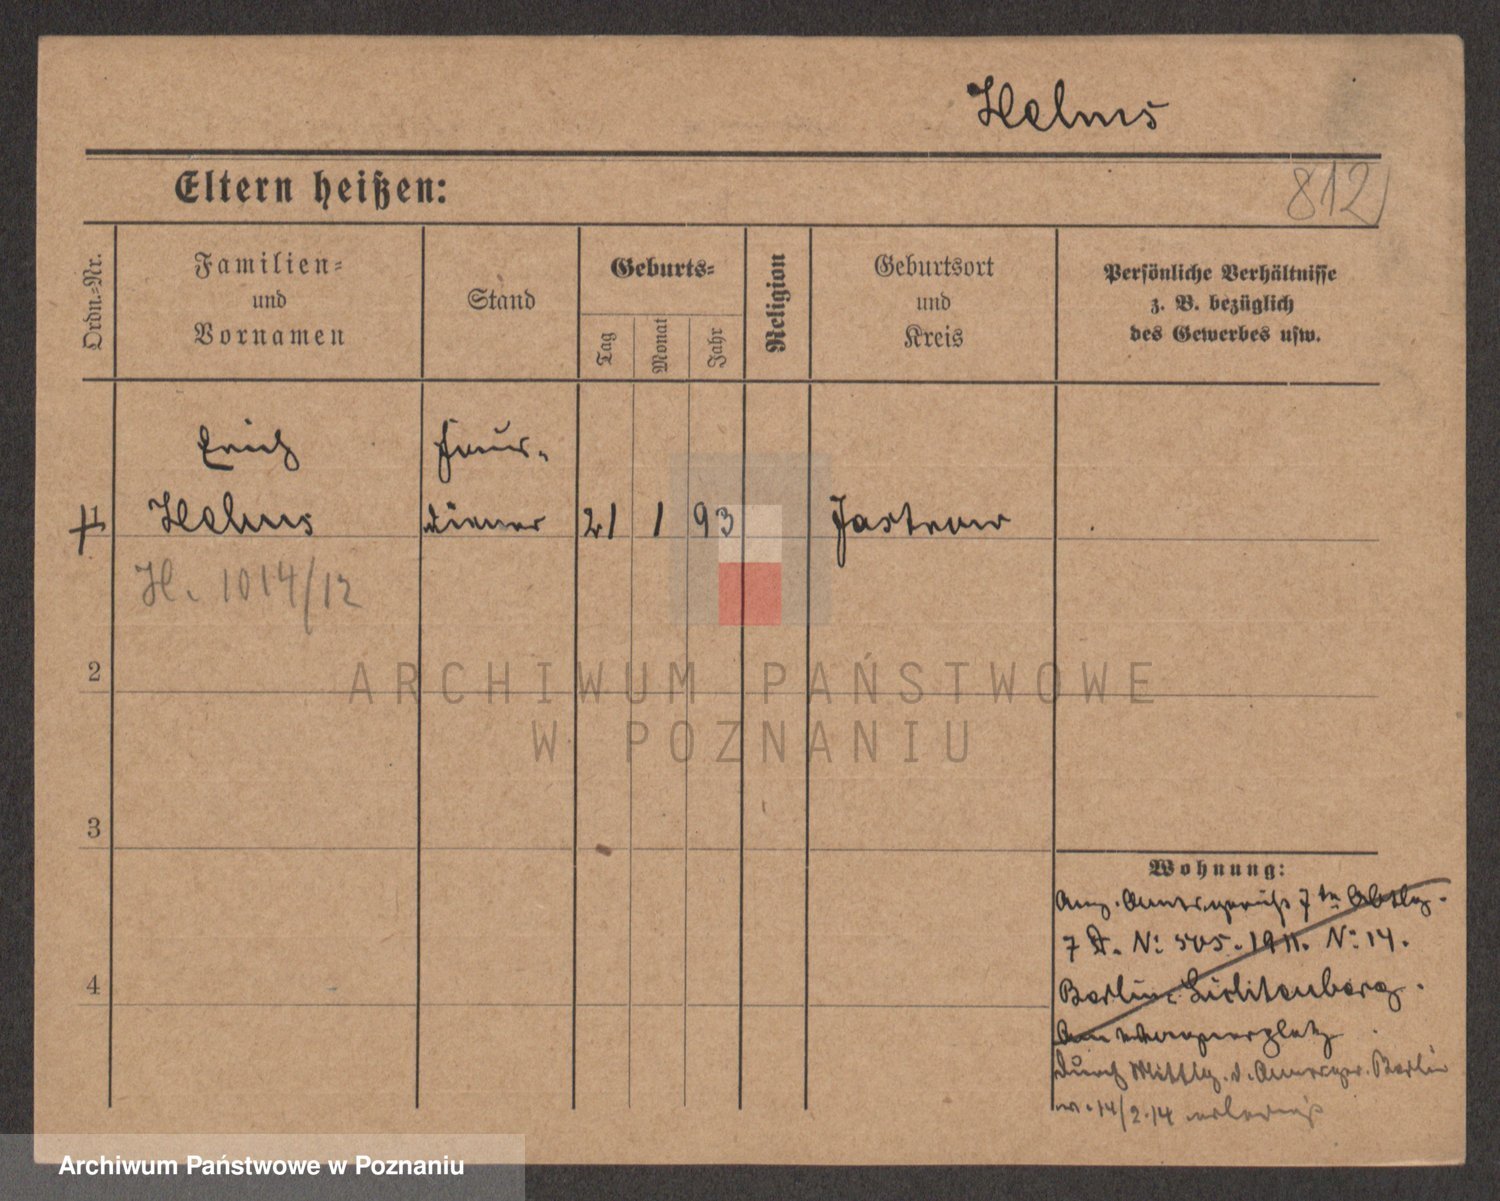 Helms
Eltern heißen:
812
Ordn.=Nr.
Familien=
und
Vornamen
Stand
Geburts=
Tag
Monat
Jahr
Religion
Geburtsort
und
Kreis
Persönliche Verhältnisse
z. B. bezüglich
des Gewerbes usw.
Erich
Haus-
1 Helms diener 21 1 93 Jastrow
H. 1014/12
2
ARCHIWUM PAŃSTWOWE
W POZNANIU
3
Wohnung:
Anz. Amtsgericht 7te Abtlg.
7 D. No: 505. 1911. No: 14.
Berlin-Lichtenberg.
4
Am Wagnerplatz
durch Mittlg. d. Amtsger. Berlin
v. 14/2.14 erledigt
Archiwum Państwowe w Poznaniu